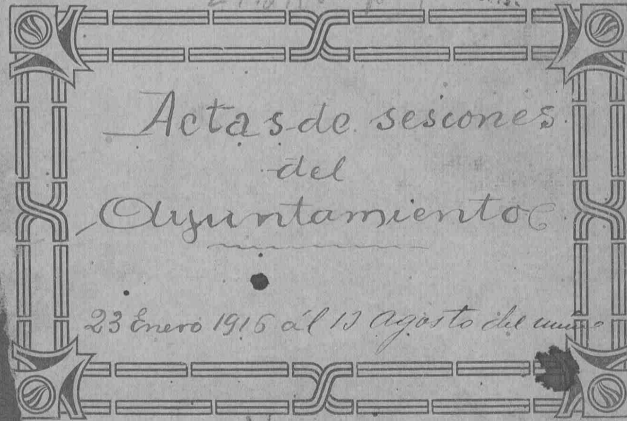 Actas de sesiones
del
Ayuntamiento
23 Enero 1916 al 13 Agosto del